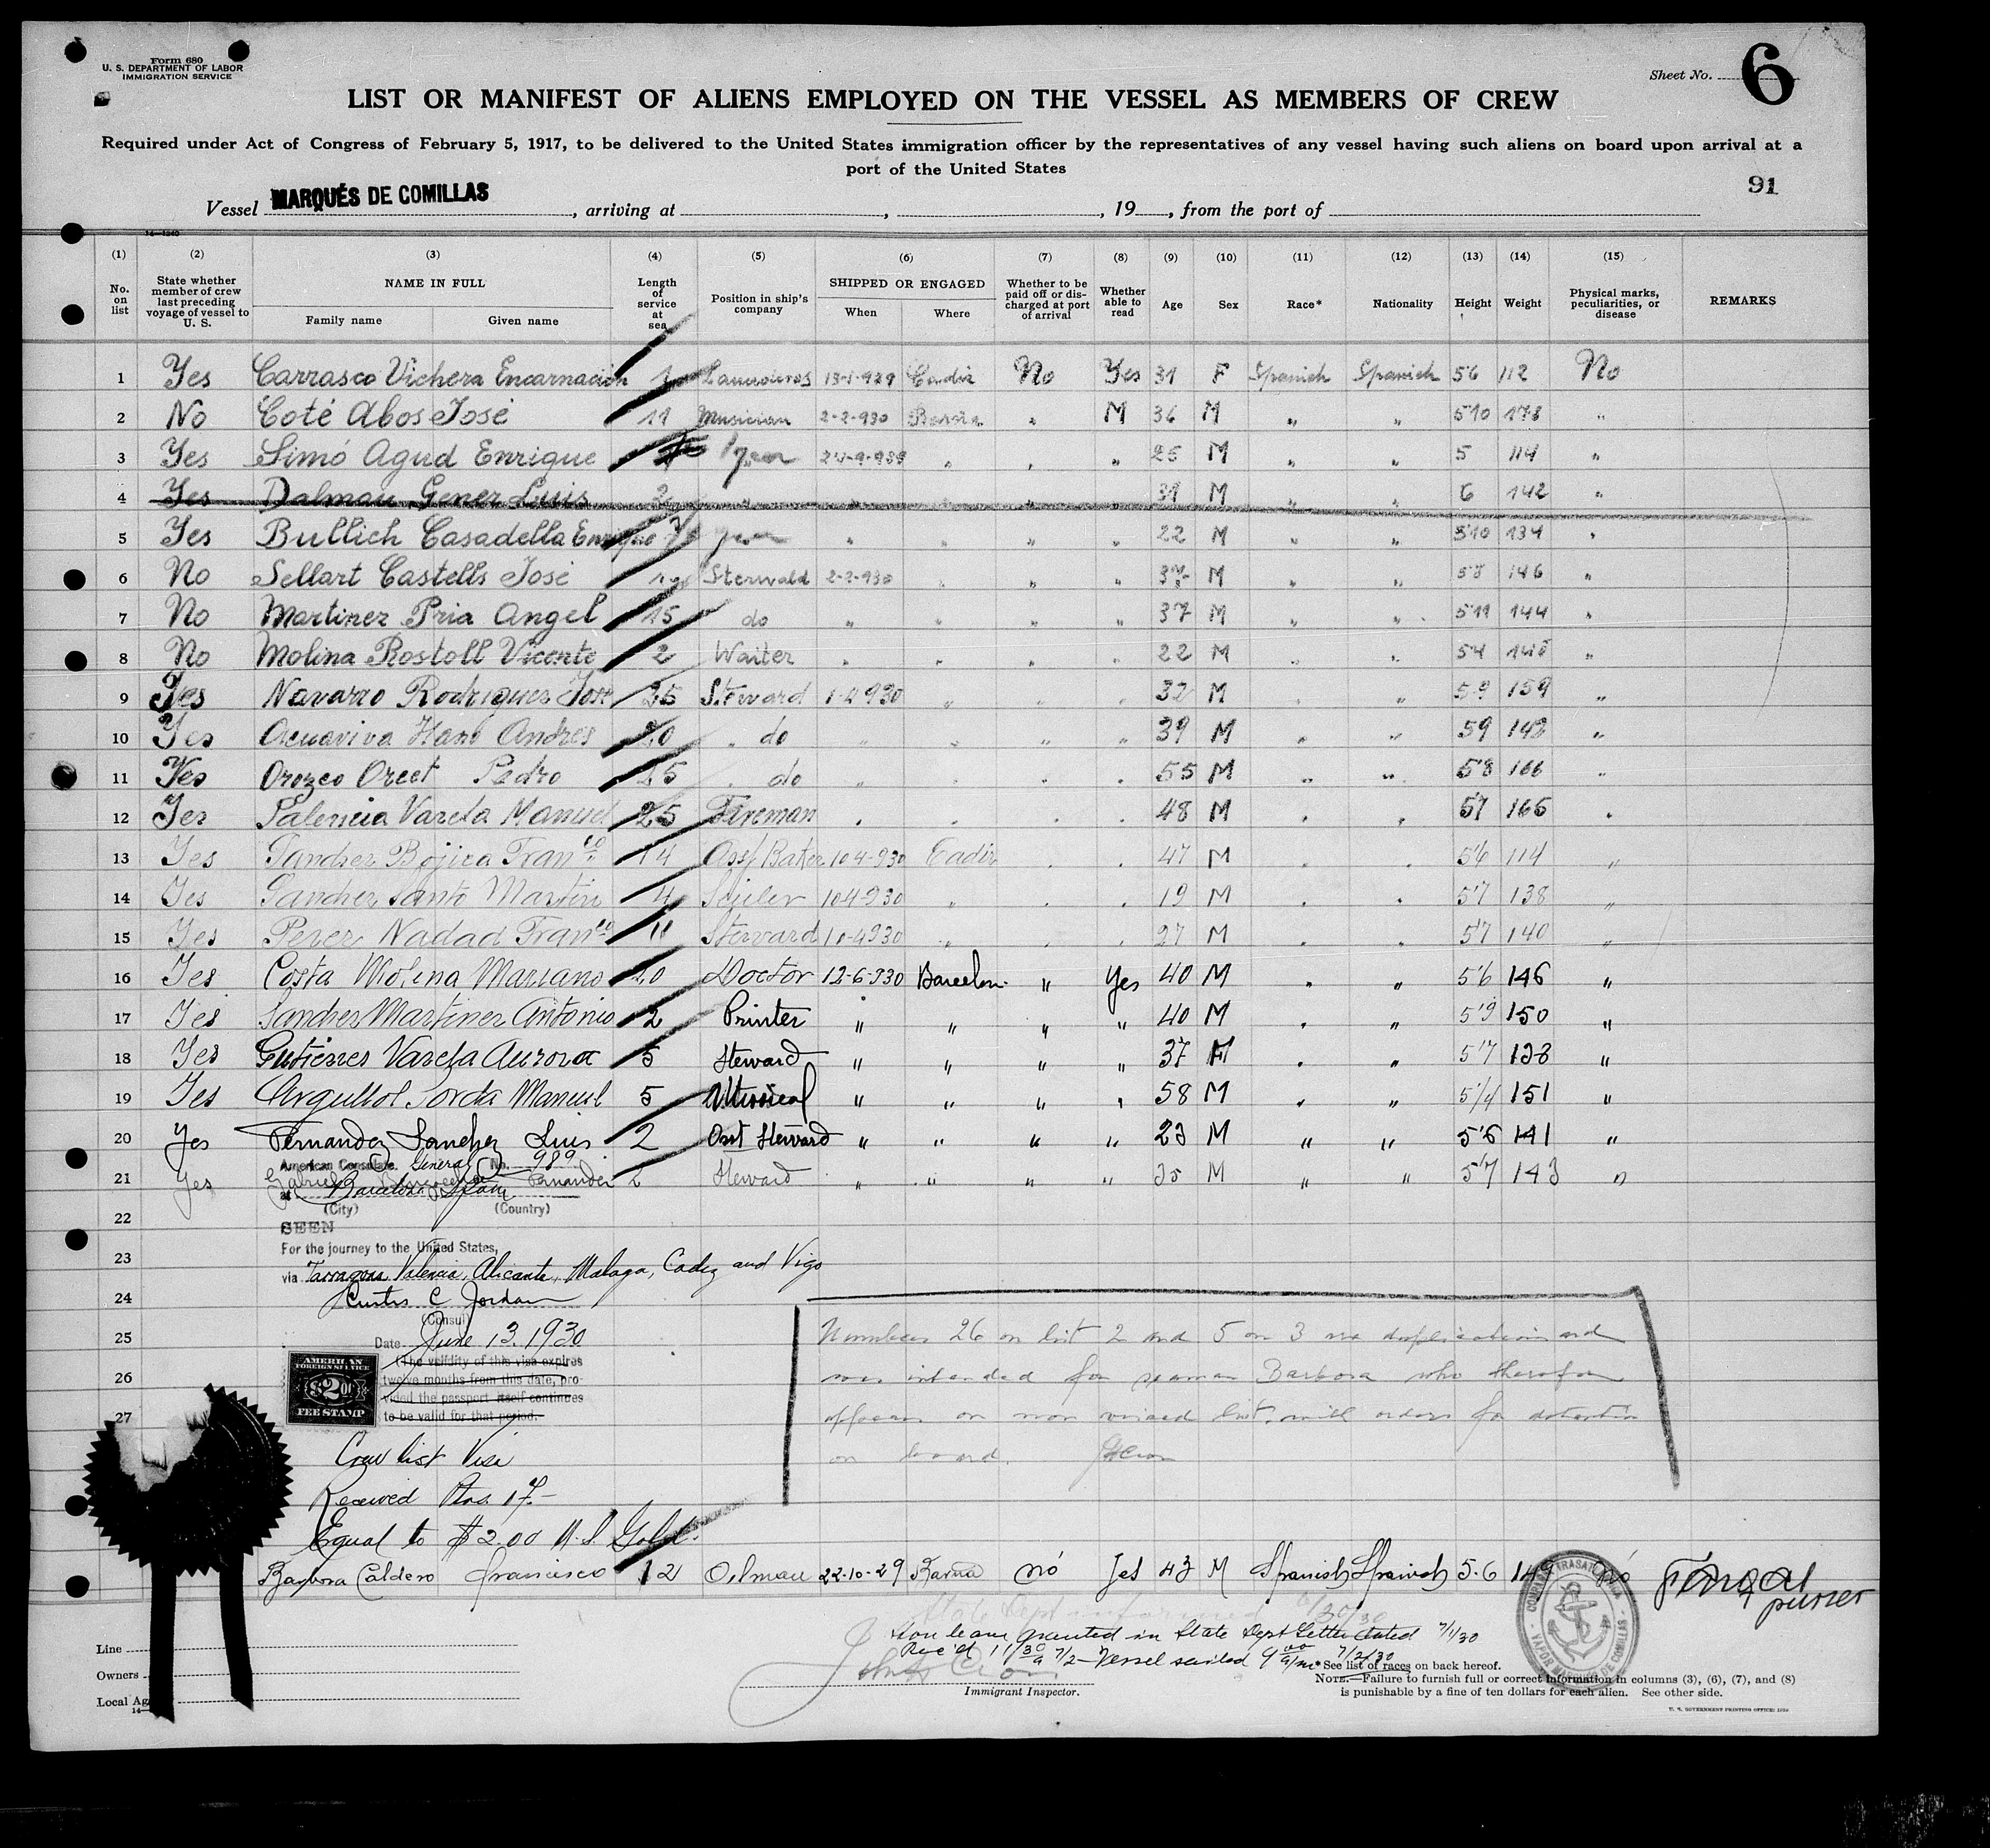 Form 680
U. S. DEPARTMENT OF LABOR
IMMIGRATION SERVICE
Sheet No. 6
LIST OR MANIFEST OF ALIENS EMPLOYED ON THE VESSEL AS MEMBERS OF CREW
Required under Act of Congress of February 5, 1917, to be delivered to the United States immigration officer by the representatives of any vessel having such aliens on board upon arrival at a
port of the United States
91
Vessel MARQUÉS DE COMILLAS, arriving at , , 19 , from the port of
(1) (2) (3) (4) (5) (6) (7) (8) (9) (10) (11) (12) (13) (14) (15)
No. on list State whether member of crew last preceding voyage of vessel to U. S. NAME IN FULL Family name Given name Length of service at sea Position in ship's company SHIPPED OR ENGAGED When Where Whether to be paid off or discharged at port of arrival Whether able to read Age Sex Race* Nationality Height Weight Physical marks, peculiarities, or disease REMARKS
1 Yes Carrasco Vichera Encarnación 13-1-929 Cadiz No Yes 31 F Spanish Spanish 56 112 No
2 No Coté Abos José 11 Musician 2-2-930 " M 36 M " " 510 178 "
3 Yes Simó Agud Enrique " " " 25 M " " 5 114 "
4 Yes Dalmau Gener Luis 2 " " " " " 31 M " " 6 142 "
5 Yes Bullich Casadella Enrique " " " " 22 M " " 510 134 "
6 No Sellart Castells José Sterwald 2-2-930 " " " 37 M " " 58 146 "
7 No Martinez Pria Angel 15 do " " " " 37 M " " 511 144 "
8 No Molina Rostoll Vicente 2 Waiter " " " " 22 M " " 54 "
9 Yes Navarro Rodriguez José 25 Steward 1-4-930 " " " 32 M " 59 159 "
10 Yes Acuaviva Haro Andres 20 " do " " " " 39 M " " 59 142 "
11 Yes Orozco Orcet Pedro 25 " do " " " 55 M " " 58 166 "
12 Yes Palencia Varela Manuel 25 Fireman " " " " 48 M " " 57 165 "
13 Yes Sanchez Bojica Fran.co 14 Asst Baker 10-4-930 Cadiz " " 47 M " " 56 114 "
14 Yes Sanchez Santo Martin 4 10-4-930 " " " 19 M " " 57 138 "
15 Yes Perez Nadad Fran.co 11 Steward 10-4-930 " " " 27 M " " 57 140 "
16 Yes Costa Molina Mariano 20 Doctor 12-6-930 Barcelon. " Yes 40 M " " 5'6 146 "
17 Yes Sanchez Martinez Antonio 2 Printer " " " " 40 M " " 5'9 150 "
18 Yes Gutierres Varela Aurora 5 Steward " " " " 37 F " " 5'7 138 "
19 Yes Argullol Sorda Manuel 5 " " " " 58 M " " 5'4 151 "
20 Yes Fernandez Sanchez Luis 2 Asst Steward " " " " 23 M " " 5'6 141 "
21 Yes Gabriel Fernandez 2 Steward " " " " 25 M " " 5'7 143 "
American Consulate General No. 989
at Barcelona Spain
(City) (Country)
22
SEEN
23 For the journey to the United States,
via Tarragona, Valencia, Alicante, Malaga, Cadiz and Vigo
24 Curtis C Jordan
(Consul)
25 Date June 13. 1930
(The validity of this visa expires
twelve months from this date, provided the passport itself continues
to be valid for that period.
26
27
AMERICAN FOREIGN SERVICE $2.00 FEE STAMP
Numbers 26 on list 2 and 5 on 3 are duplications and
was intended for seaman Barbora who therefore
appears on non visaed list, with orders for detention
on board.
Crew list Visa
Received Ptas. 17.-
Equal to $2.00 U.S. Gold.
Barbora Caldero Francisco 12 Oilman 22-10-29 Barña no Yes 43 M Spanish Spanish 5.6 no
purser
COMPAÑIA TRASATLANTICA VAPOR MARQUES DE COMILLAS
State Dept informed 6/30/30
Shore leave granted in State Dept Letter dated 7/1/30
Rec'd 7/2 — Vessel sailed 9 00 a/m 7/2/30
Immigrant Inspector.
Line
Owners
Local Ag
*See list of races on back hereof.
NOTE.—Failure to furnish full or correct information in columns (3), (6), (7), and (8)
is punishable by a fine of ten dollars for each alien. See other side.
U. S. GOVERNMENT PRINTING OFFICE